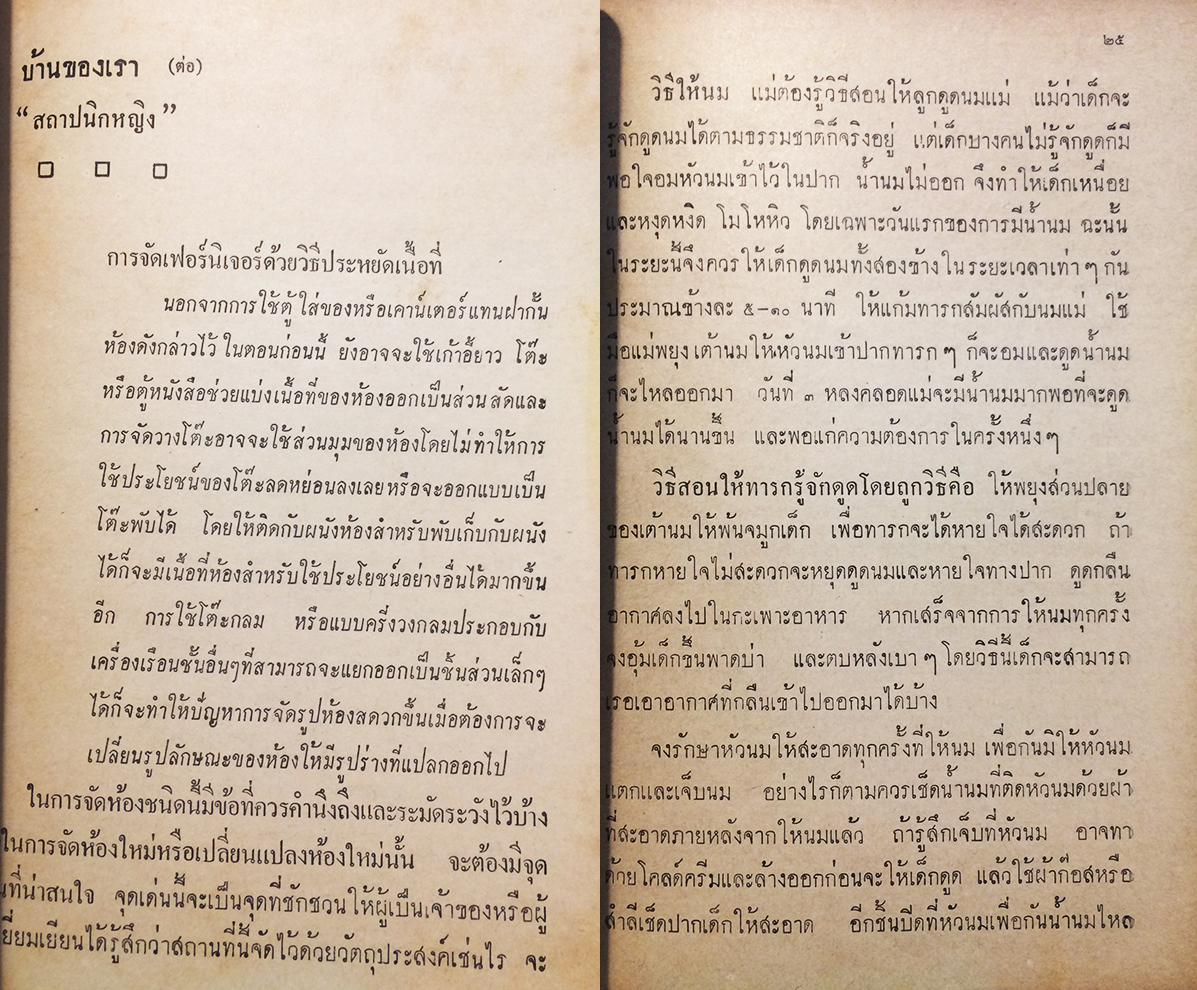 บ้านของเรา (ต่อ)
“สถาปนิกหญิง”
การจัดเฟอร์นิเจอร์ด้วยวิธีประหยัดเนื้อที่
นอกจากการใช้ตู้ใส่ของหรือเคาน์เตอร์แทนฝากั้น
ห้องดังกล่าวไว้ในตอนก่อนนี้ ยังอาจจะใช้เก้าอี้ยาว โต๊ะ
หรือตู้หนังสือช่วยแบ่งเนื้อที่ของห้องออกเป็นส่วนสัดและ
การจัดวางโต๊ะอาจจะใช้ส่วนมุมของห้องโดยไม่ทำให้การ
ใช้ประโยชน์ของโต๊ะลดหย่อนลงเลยหรือจะออกแบบเป็น
โต๊ะพับได้ โดยให้ติดกับผนังห้องสำหรับพับเก็บกับผนัง
ได้ก็จะมีเนื้อที่ห้องสำหรับใช้ประโยชน์อย่างอื่นได้มากขึ้น
อีก การใช้โต๊ะกลม หรือแบบครึ่งวงกลมประกอบกับ
เครื่องเรือนชั้นอื่นๆที่สามารถจะแยกออกเป็นชิ้นส่วนเล็กๆ
ได้ก็จะทำให้ปัญหาการจัดรูปห้องสดวกขึ้นเมื่อต้องการจะ
เปลี่ยนรูปลักษณะของห้องให้มีรูปร่างที่แปลกออกไป
ในการจัดห้องชนิดนี้มีข้อที่ควรคำนึงถึงและระมัดระวังไว้บ้าง
ในการจัดห้องใหม่หรือเปลี่ยนแปลงห้องใหม่นั้น จะต้องมีจุด
ที่น่าสนใจ จุดเด่นนี้จะเป็นจุดที่ชักชวนให้ผู้เป็นเจ้าของหรือผู้
เยี่ยมเยียนได้รู้สึกว่าสถานที่นี้จัดไว้ด้วยวัตถุประสงค์เช่นไร จะ
๒๕
วิธีให้นม แม่ต้องรู้วิธีสอนให้ลูกดูดนมแม่ แม้ว่าเด็กจะ
รู้จักดูดนมได้ตามธรรมชาติก็จริงอยู่ แต่เด็กบางคนไม่รู้จักดูดก็มี
พอใจอมหัวนมเข้าไว้ในปาก น้ำนมไม่ออก จึงทำให้เด็กเหนื่อย
และหงุดหงิด โมโหหิว โดยเฉพาะวันแรกของการมีน้ำนม ฉะนั้น
ในระยะนี้จึงควรให้เด็กดูดนมทั้งสองข้างในระยะเวลาเท่า ๆ กัน
ประมาณข้างละ ๕–๑๐ นาที ให้แก้มทารกสัมผัสกับนมแม่ ใช้
มือแม่พยุงเต้านมให้หัวนมเข้าปากทารก ๆ ก็จะอมและดูดน้ำนม
ก็จะไหลออกมา วันที่ ๓ หลังคลอดแม่จะมีน้ำนมมากพอที่จะดูด
น้ำนมได้นานขึ้น และพอแก่ความต้องการในครั้งหนึ่ง ๆ
วิธีสอนให้ทารกรู้จักดูดโดยถูกวิธีคือ ให้พยุงส่วนปลาย
ของเต้านมให้พ้นจมูกเด็ก เพื่อทารกจะได้หายใจได้สะดวก ถ้า
ทารกหายใจไม่สะดวกจะหยุดดูดนมและหายใจทางปาก ดูดกลืน
อากาศลงไปในกะเพาะอาหาร หากเสร็จจากการให้นมทุกครั้ง
จงอุ้มเด็กขึ้นพาดบ่า และตบหลังเบา ๆ โดยวิธีนี้เด็กจะสามารถ
เรอเอาอากาศที่กลืนเข้าไปออกมาได้บ้าง
จงรักษาหัวนมให้สะอาดทุกครั้งที่ให้นม เพื่อกันมิให้หัวนม
แตกและเจ็บนม อย่างไรก็ตามควรเช็ดน้ำนมที่ติดหัวนมด้วยผ้า
ที่สะอาดภายหลังจากให้นมแล้ว ถ้ารู้สึกเจ็บที่หัวนม อาจทา
ด้วยโคลด์ครีมและล้างออกก่อนจะให้เด็กดูด แล้วใช้ผ้าก๊อสหรือ
สำลีเช็ดปากเด็กให้สะอาด อีกชิ้นปิดที่หัวนมเพื่อกันน้ำนมไหล